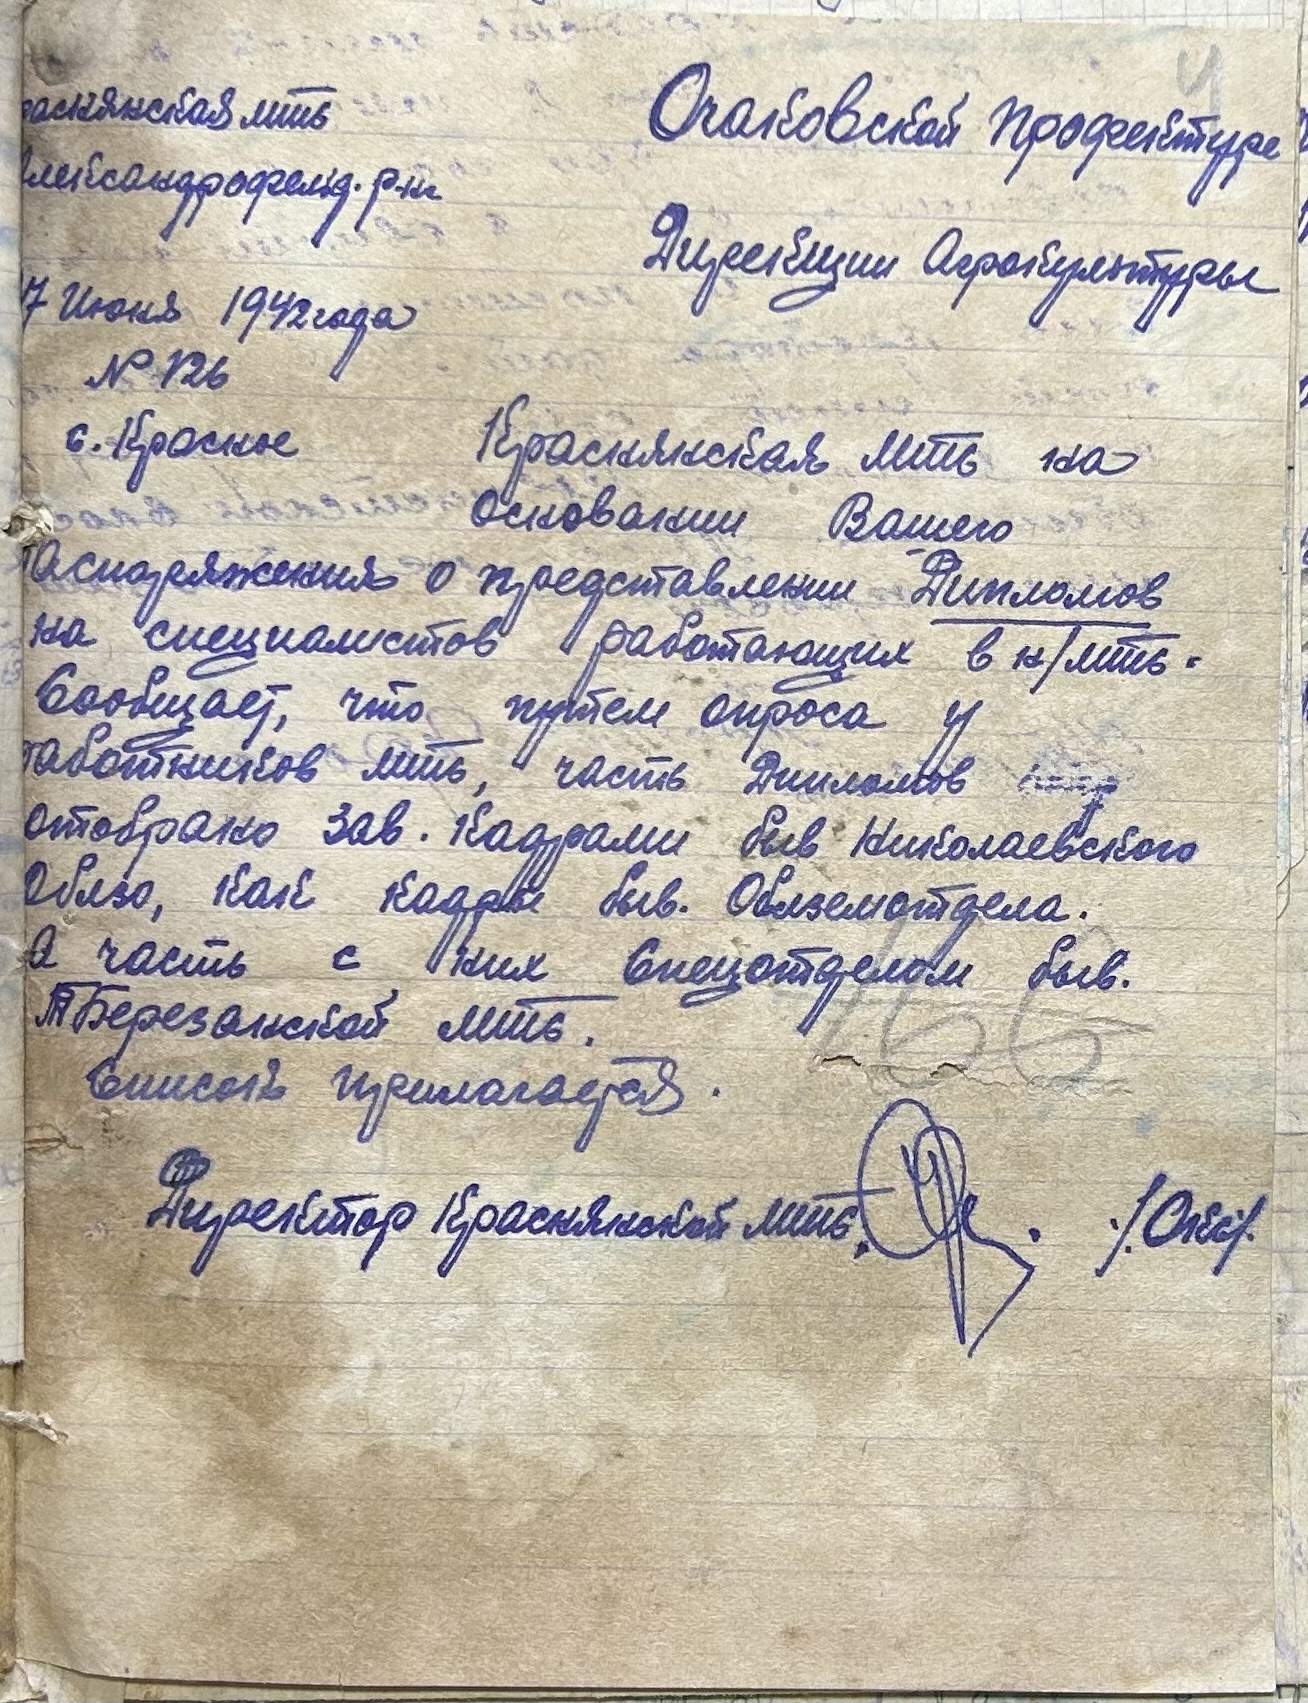 раснянская мть
лександрофельд. р-н
17 Июня 1942 года
№ 126
с. Красное
Очаковской Профектуре
Дирекции Агрокультуры
Краснянская Мть на
основании Вашего
распоряжения о представлении Дипломов
на специалистов работающих в к/мть.
Сообщает, что путем опроса у
работников мть, часть Дипломов
отобрано Зав. Кадрами быв Николаевского
Облзо, как кадры быв. Облземотдела.
а часть с них Спецотделом быв.
Березанской мть.
Список прилагается.
Директор Краснянской мть.
166